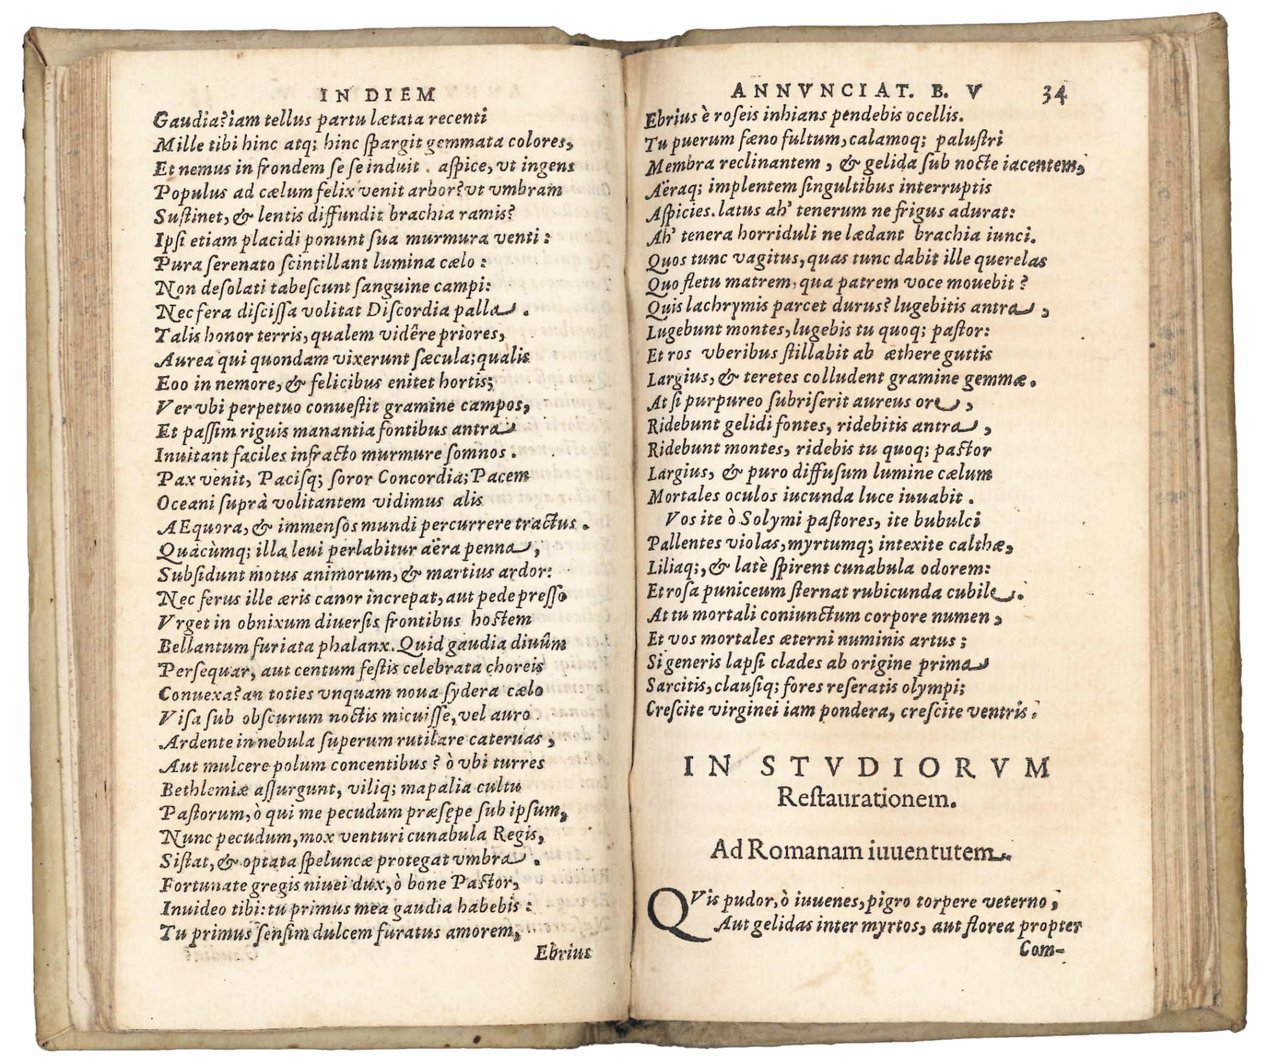 IN DIEM
Gaudia?iam tellus partu lætata recenti
Mille tibi hinc atq; hinc spargit gemmata colores,
Et nemus in frondem se se induit. aspice, vt ingens
Populus ad cælum felix venit arbor? vt vmbram
Sustinet, & lentis diffundit brachia ramis?
Ipsi etiam placidi ponunt sua murmura venti:
Pura serenato scintillant lumina cælo:
Non desolati tabescunt sanguine campi:
Nec fera discissa volitat Discordia palla.
Talis honor terris, qualem vidêre priores,
Aurea qui quondam vixerunt sæcula; qualis
Eoo in nemore, & felicibus enitet hortis;
Ver vbi perpetuo conuestit gramine campos,
Et passim riguis manantia fontibus antra
Inuitant faciles infracto murmure somnos.
Pax venit, Pacisq; soror Concordia; Pacem
Oceani suprà volitantem vidimus alis
AEquora, & immensos mundi percurrere tractus.
Quàcùmq; illa leui perlabitur aëra penna,
Subsidunt motus animorum, & martius ardor:
Nec ferus ille æris canor increpat, aut pede presso
Vrget in obnixum diuersis frontibus hostem
Bellantum furiata phalanx. Quid gaudia diuûm
Persequar, aut centum festis celebrata choreis
Conuexa? an toties vnquam noua sydera cælo
Visa sub obscurum noctis micuisse, vel auro
Ardente in nebula superum rutilare cateruas,
Aut mulcere polum concentibus? ò vbi turres
Bethlemiæ assurgunt, viliq; mapalia cultu
Pastorum, ò qui me pecudum præsepe sub ipsum,
Nunc pecudum, mox venturi cunabula Regis,
Sistat, & optata speluncæ protegat vmbra.
Fortunate gregis niuei dux, ò bone Pastor,
Inuideo tibi: tu primus mea gaudia habebis:
Tu primus sensim dulcem furatus amorem,
Ebrius
ANNVNCIAT. B. V 34
Ebrius è roseis inhians pendebis ocellis.
Tu puerum fæno fultum, calamoq; palustri
Membra reclinantem, & gelida sub nocte iacentem,
Aëraq; implentem singultibus interruptis
Aspicies. latus ah' tenerum ne frigus adurat:
Ah' tenera horriduli ne lædant brachia iunci.
Quos tunc vagitus, quas tunc dabit ille querelas
Quo fletu matrem, qua patrem voce mouebit?
Quis lachrymis parcet durus? lugebitis antra,
Lugebunt montes, lugebis tu quoq; pastor:
Et ros vberibus stillabit ab æthere guttis
Largius, & teretes colludent gramine gemmæ.
At si purpureo subriserit aureus ore,
Ridebunt gelidi fontes, ridebitis antra,
Ridebunt montes, ridebis tu quoq; pastor
Largius, & puro diffusum lumine cælum
Mortales oculos iucunda luce iuuabit.
Vos ite ò Solymi pastores, ite bubulci
Pallentes violas, myrtumq; intexite calthæ,
Liliaq;, & latè spirent cunabula odorem:
Et rosa puniceum sternat rubicunda cubile.
At tu mortali coniunctum corpore numen,
Et vos mortales æterni numinis artus;
Si generis lapsi clades ab origine prima
Sarcitis, clausiq; fores reseratis olympi;
Crescite virginei iam pondera, crescite ventris.
IN STVDIORVM
Restaurationem.
Ad Romanam iuuentutem.
QVis pudor, ò iuuenes, pigro torpere veterno;
Aut gelidas inter myrtos, aut florea propter
Com-